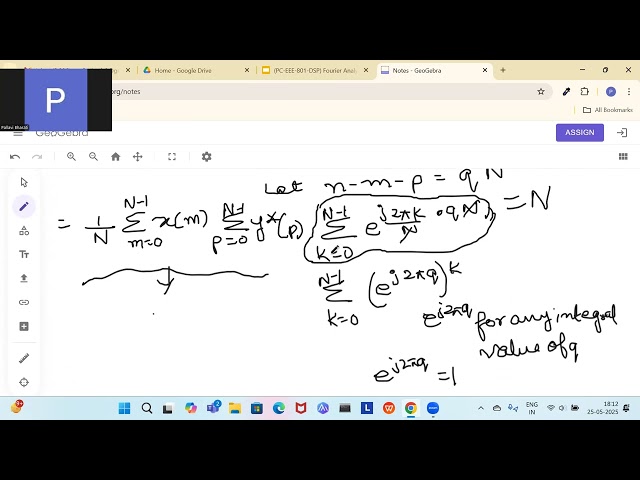 Home - Google Drive
(PC-EEE-801-DSP) Fourier Anal
Notes - GeoGebra
P
org/notes
P
All Bookmarks
Pallavi Bharati
GeoGebra
ASSIGN
Let n-m-p = qN
= 1/N Σ_{m=0}^{N-1} x(m) Σ_{p=0}^{N-1} y*(p) Σ_{k=0}^{N-1} e^{j2πk/N · qN} = N
Σ_{k=0}^{N-1} (e^{j2πq})^k
e^{j2πq} for any integral
value of q
e^{j2πq} = 1
Tr
ENG
IN
18:12
25-05-2025